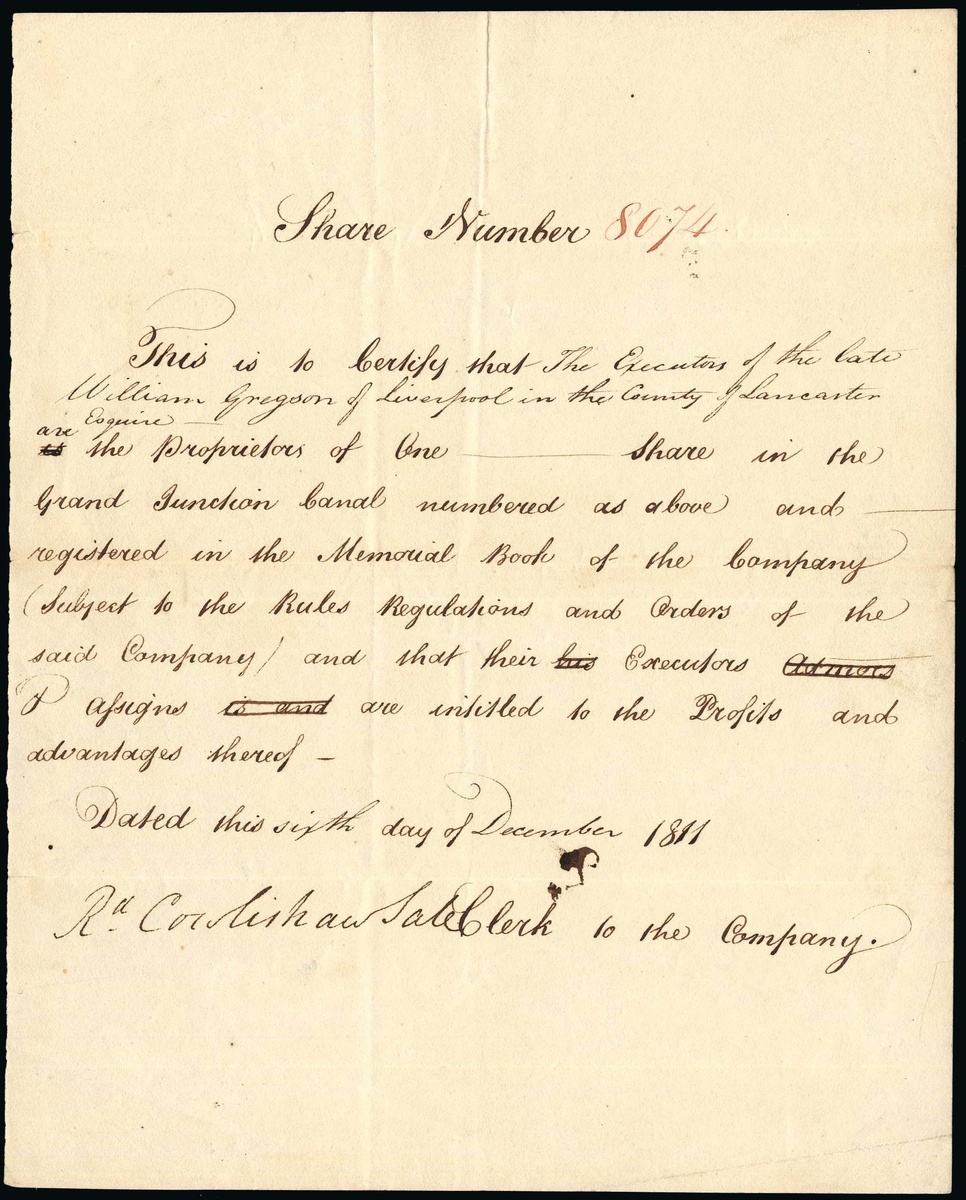 Share Number 8074
This is to Certify that The Executors of the late
William Gregson of Liverpool in the County of Lancaster
Esquire —
are
is the Proprietors of One ——— Share in the
Grand Junction Canal numbered as above and —
registered in the Memorial Book of the Company
(Subject to the Rules Regulations and Orders of the
said Company) and that their his Executors Admors
& Assigns is and are intitled to the Profits and
advantages thereof —
Dated this sixth day of December 1811
Rd. Cowlishaw Sale Clerk to the Company.